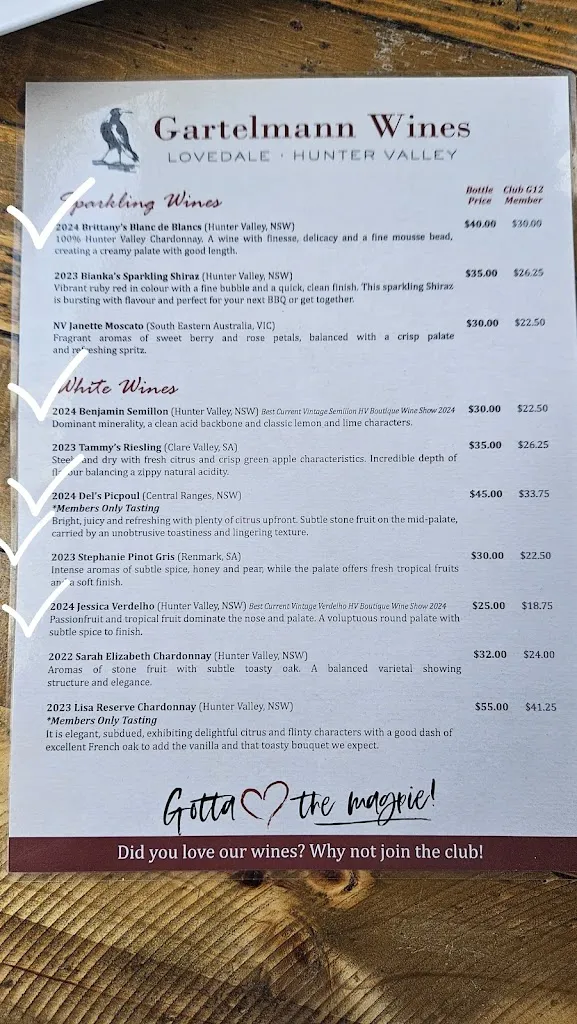 Gartelmann Wines
LOVEDALE · HUNTER VALLEY
Sparkling Wines
Bottle Price
Club G12 Member
2024 Brittany's Blanc de Blancs (Hunter Valley, NSW) $40.00 $30.00
100% Hunter Valley Chardonnay. A wine with finesse, delicacy and a fine mousse bead,
creating a creamy palate with good length.
2023 Bianka's Sparkling Shiraz (Hunter Valley, NSW) $35.00 $26.25
Vibrant ruby red in colour with a fine bubble and a quick, clean finish. This sparkling Shiraz
is bursting with flavour and perfect for your next BBQ or get together.
NV Janette Moscato (South Eastern Australia, VIC) $30.00 $22.50
Fragrant aromas of sweet berry and rose petals, balanced with a crisp palate
and refreshing spritz.
White Wines
2024 Benjamin Semillon (Hunter Valley, NSW) Best Current Vintage Semillon HV Boutique Wine Show 2024 $30.00 $22.50
Dominant minerality, a clean acid backbone and classic lemon and lime characters.
2023 Tammy's Riesling (Clare Valley, SA) $35.00 $26.25
Steely and dry with fresh citrus and crisp green apple characteristics. Incredible depth of
flavour balancing a zippy natural acidity.
2024 Del's Picpoul (Central Ranges, NSW) $45.00 $33.75
*Members Only Tasting
Bright, juicy and refreshing with plenty of citrus upfront. Subtle stone fruit on the mid-palate,
carried by an unobtrusive toastiness and lingering texture.
2023 Stephanie Pinot Gris (Renmark, SA) $30.00 $22.50
Intense aromas of subtle spice, honey and pear, while the palate offers fresh tropical fruits
and a soft finish.
2024 Jessica Verdelho (Hunter Valley, NSW) Best Current Vintage Verdelho HV Boutique Wine Show 2024 $25.00 $18.75
Passionfruit and tropical fruit dominate the nose and palate. A voluptuous round palate with
subtle spice to finish.
2022 Sarah Elizabeth Chardonnay (Hunter Valley, NSW) $32.00 $24.00
Aromas of stone fruit with subtle toasty oak. A balanced varietal showing
structure and elegance.
2023 Lisa Reserve Chardonnay (Hunter Valley, NSW) $55.00 $41.25
*Members Only Tasting
It is elegant, subdued, exhibiting delightful citrus and flinty characters with a good dash of
excellent French oak to add the vanilla and that toasty bouquet we expect.
Gotta the magpie!
Did you love our wines? Why not join the club!